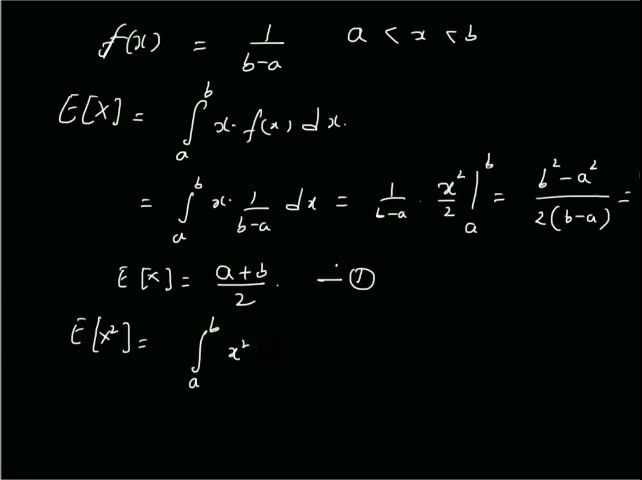 f(x) = 1/(b-a) a < x < b
E[X] = ∫_a^b x. f(x) dx.
= ∫_a^b x. 1/(b-a) dx = 1/(b-a) . x²/2 |_a^b = (b²-a²)/(2(b-a)) =
E[X] = (a+b)/2 . — ①
E[X²] = ∫_a^b x²